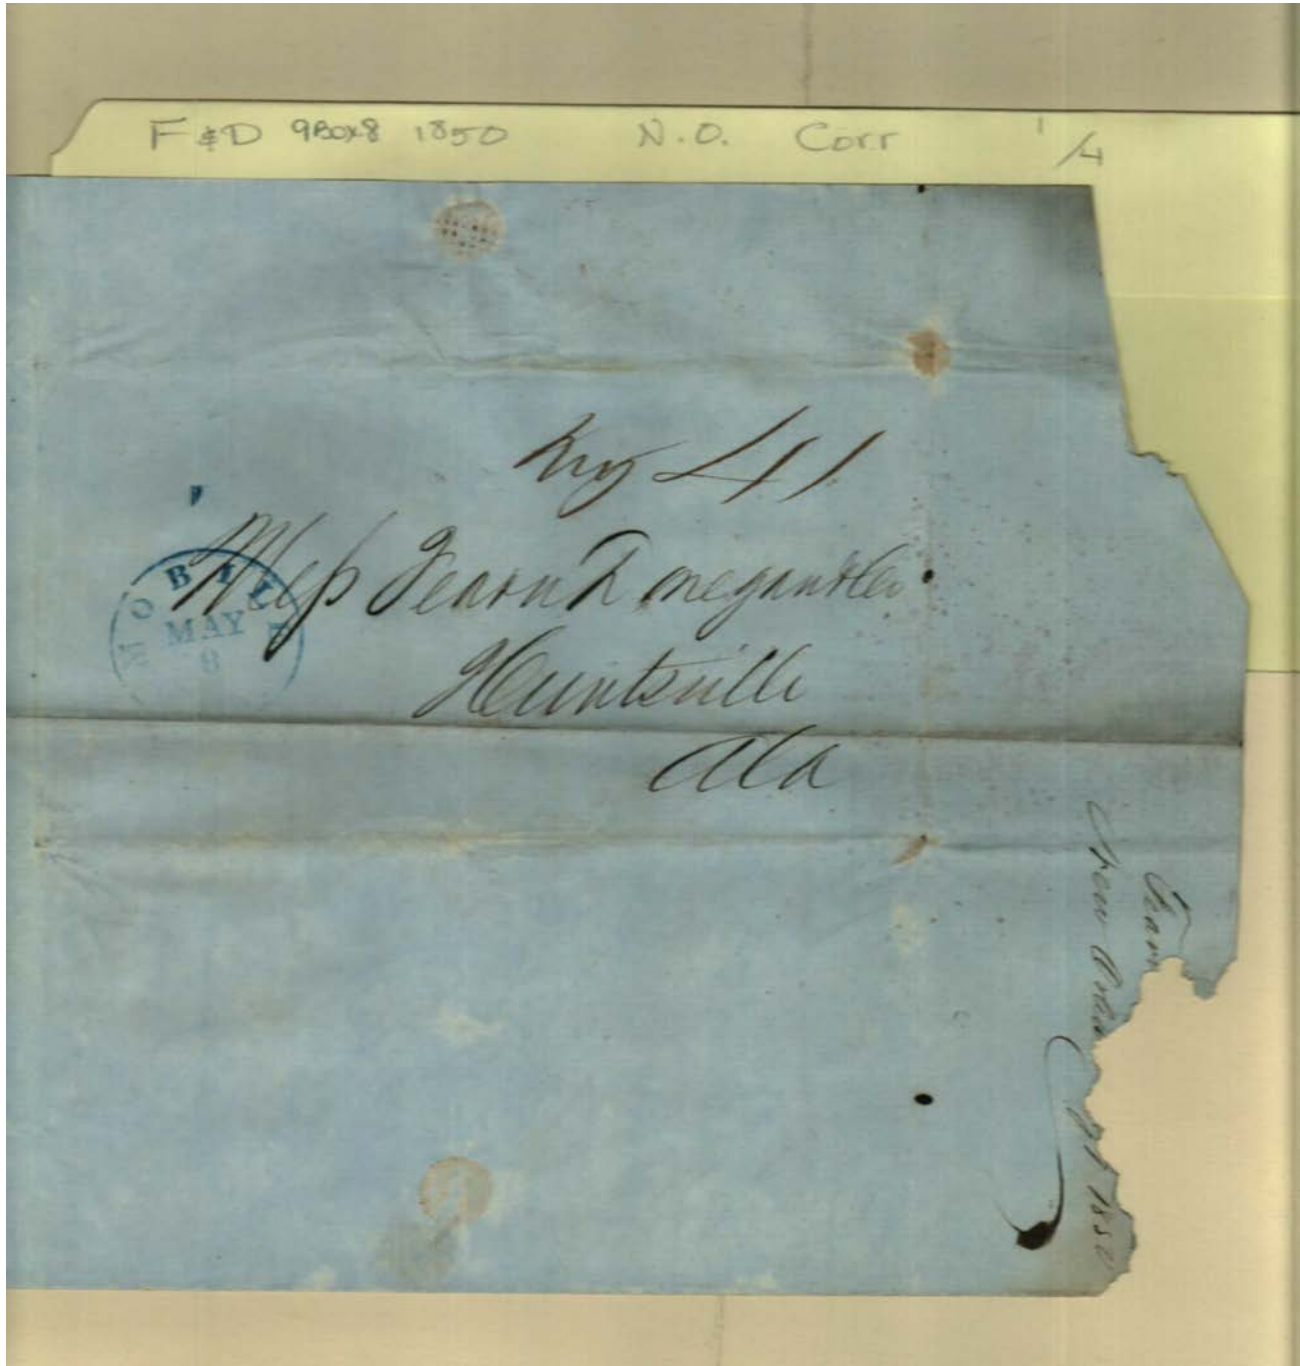 F & D 9Box8 1850 N.O. Corr 1/4
411
MOBILE
MAY
8
Mess Fearn Donegan & Co
Huntsville
Ala
Fearn
New Orleans
1850